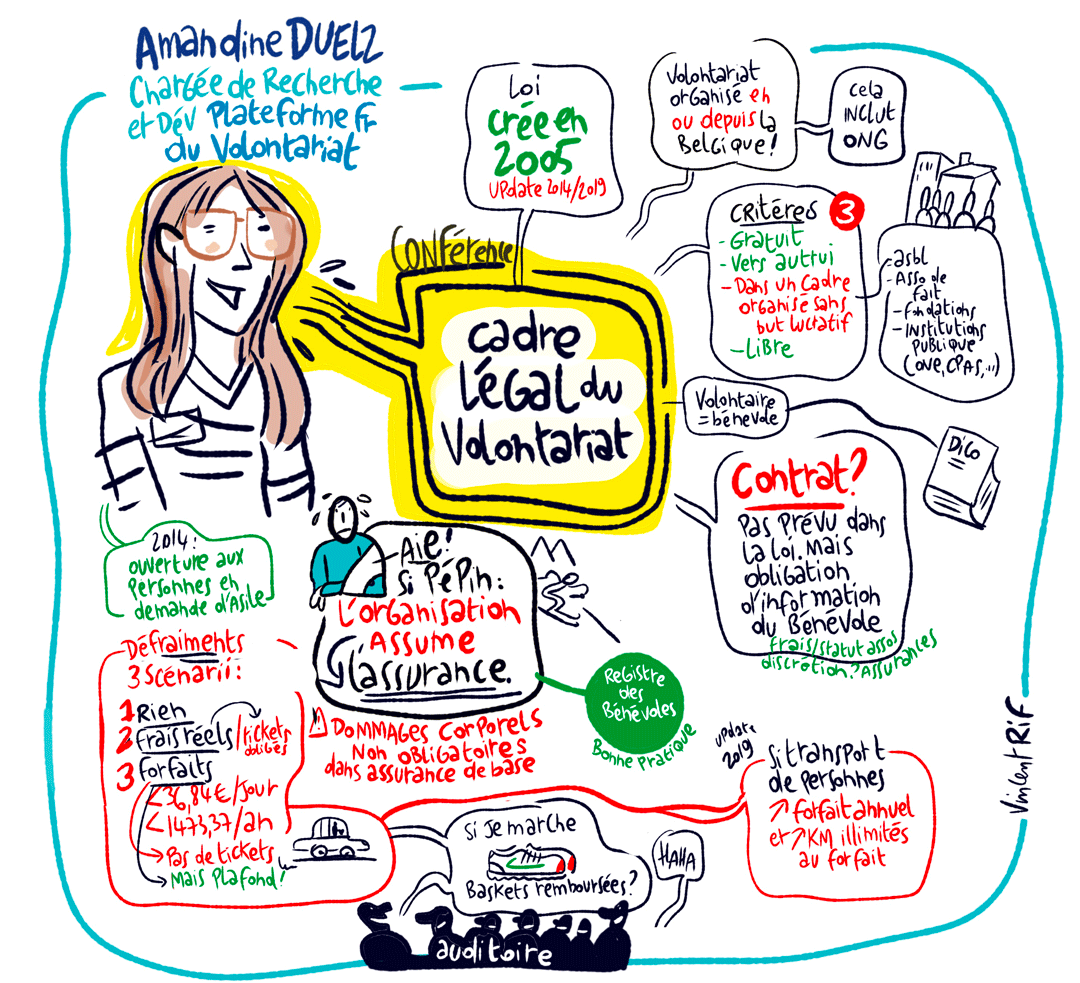 Amandine DUELZ
Chargée de Recherche
et Dév Plateforme fr
du Volontariat
Loi
créé en
2005
update 2014/2019
Volontariat
organisé en
ou depuis la
Belgique!
cela
inclut
ONG
critéres 3
- Gratuit
- Vers auttrui
- Dans un cadre
organisé sans
but lucratif
- Libre
- asbl
- Asso de
fait
- Fondations
- Institutions
publique
(ONE, CPAS, ...)
Conférence
cadre
légal du
Volontariat
Volontaire
= bénévole
Dico
Contrat?
Pas prévu dans
la loi. Mais
obligation
d'information
du Bénévole
frais/statut assos
discrétion? Assurances
2014:
ouverture aux
personnes en
demande d'Asile
Aïe!
si Pépin:
L'organisation
Assume
l'assurance.
⚠ Dommages corporels
Non obligatoires
dans assurance de base
Registre
des
Bénévoles
Bonne pratique
Défraiments
3 scénarii:
1 Rien
2 Frais réels/tickets
obligés
3 forfaits
< 36,84€/jour
< 1473,37/an
→ Pas de tickets
→ Mais Plafond!
update
2019
si transport
de personnes
↗ forfait annuel
et ↗ KM illimités
au forfait
si je marche
Baskets remboursées?
HAHA
auditoire
Vincent Rif